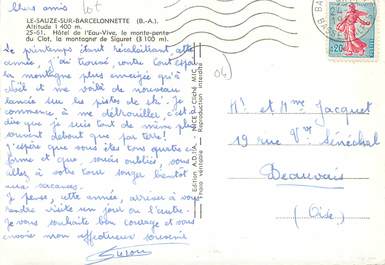 Chers amis
LE-SAUZE-SUR-BARCELONNETTE (B.-A.)
Altitude 1 400 m.
25-61. Hôtel de l'Eau-Vive, le monte-pente
du Clot, la montagne de Siguret (3 100 m).
Le printemps étant récalcitrant, cette
année, j'ai trouvé, contre tout espoir
la montagne plus enneigée qu'à
Noël et me voilà de nouveau
lancée sur les pistes de ski. Je
commence à me débrouiller, c'est à
dire que je suis tout de même plus
souvent debout que par terre!
J'espère que vous êtes tous quatre en
forme et que, soucis oubliés, vous
allez à votre tour songer bientôt
aux vacances.
Je pense, cette année, arriver à vous
rendre visite un jour ou l'autre.
Je vous souhaite bon courage et vous
envoie mon affectueux souvenir
Suzon
Edition A.D.I.A. - NICE
Photo véritable - Reproduction interdite
0,20
Mr et Mme Jacquet
19 rue Sénéchal
Beauvais
(Oise)